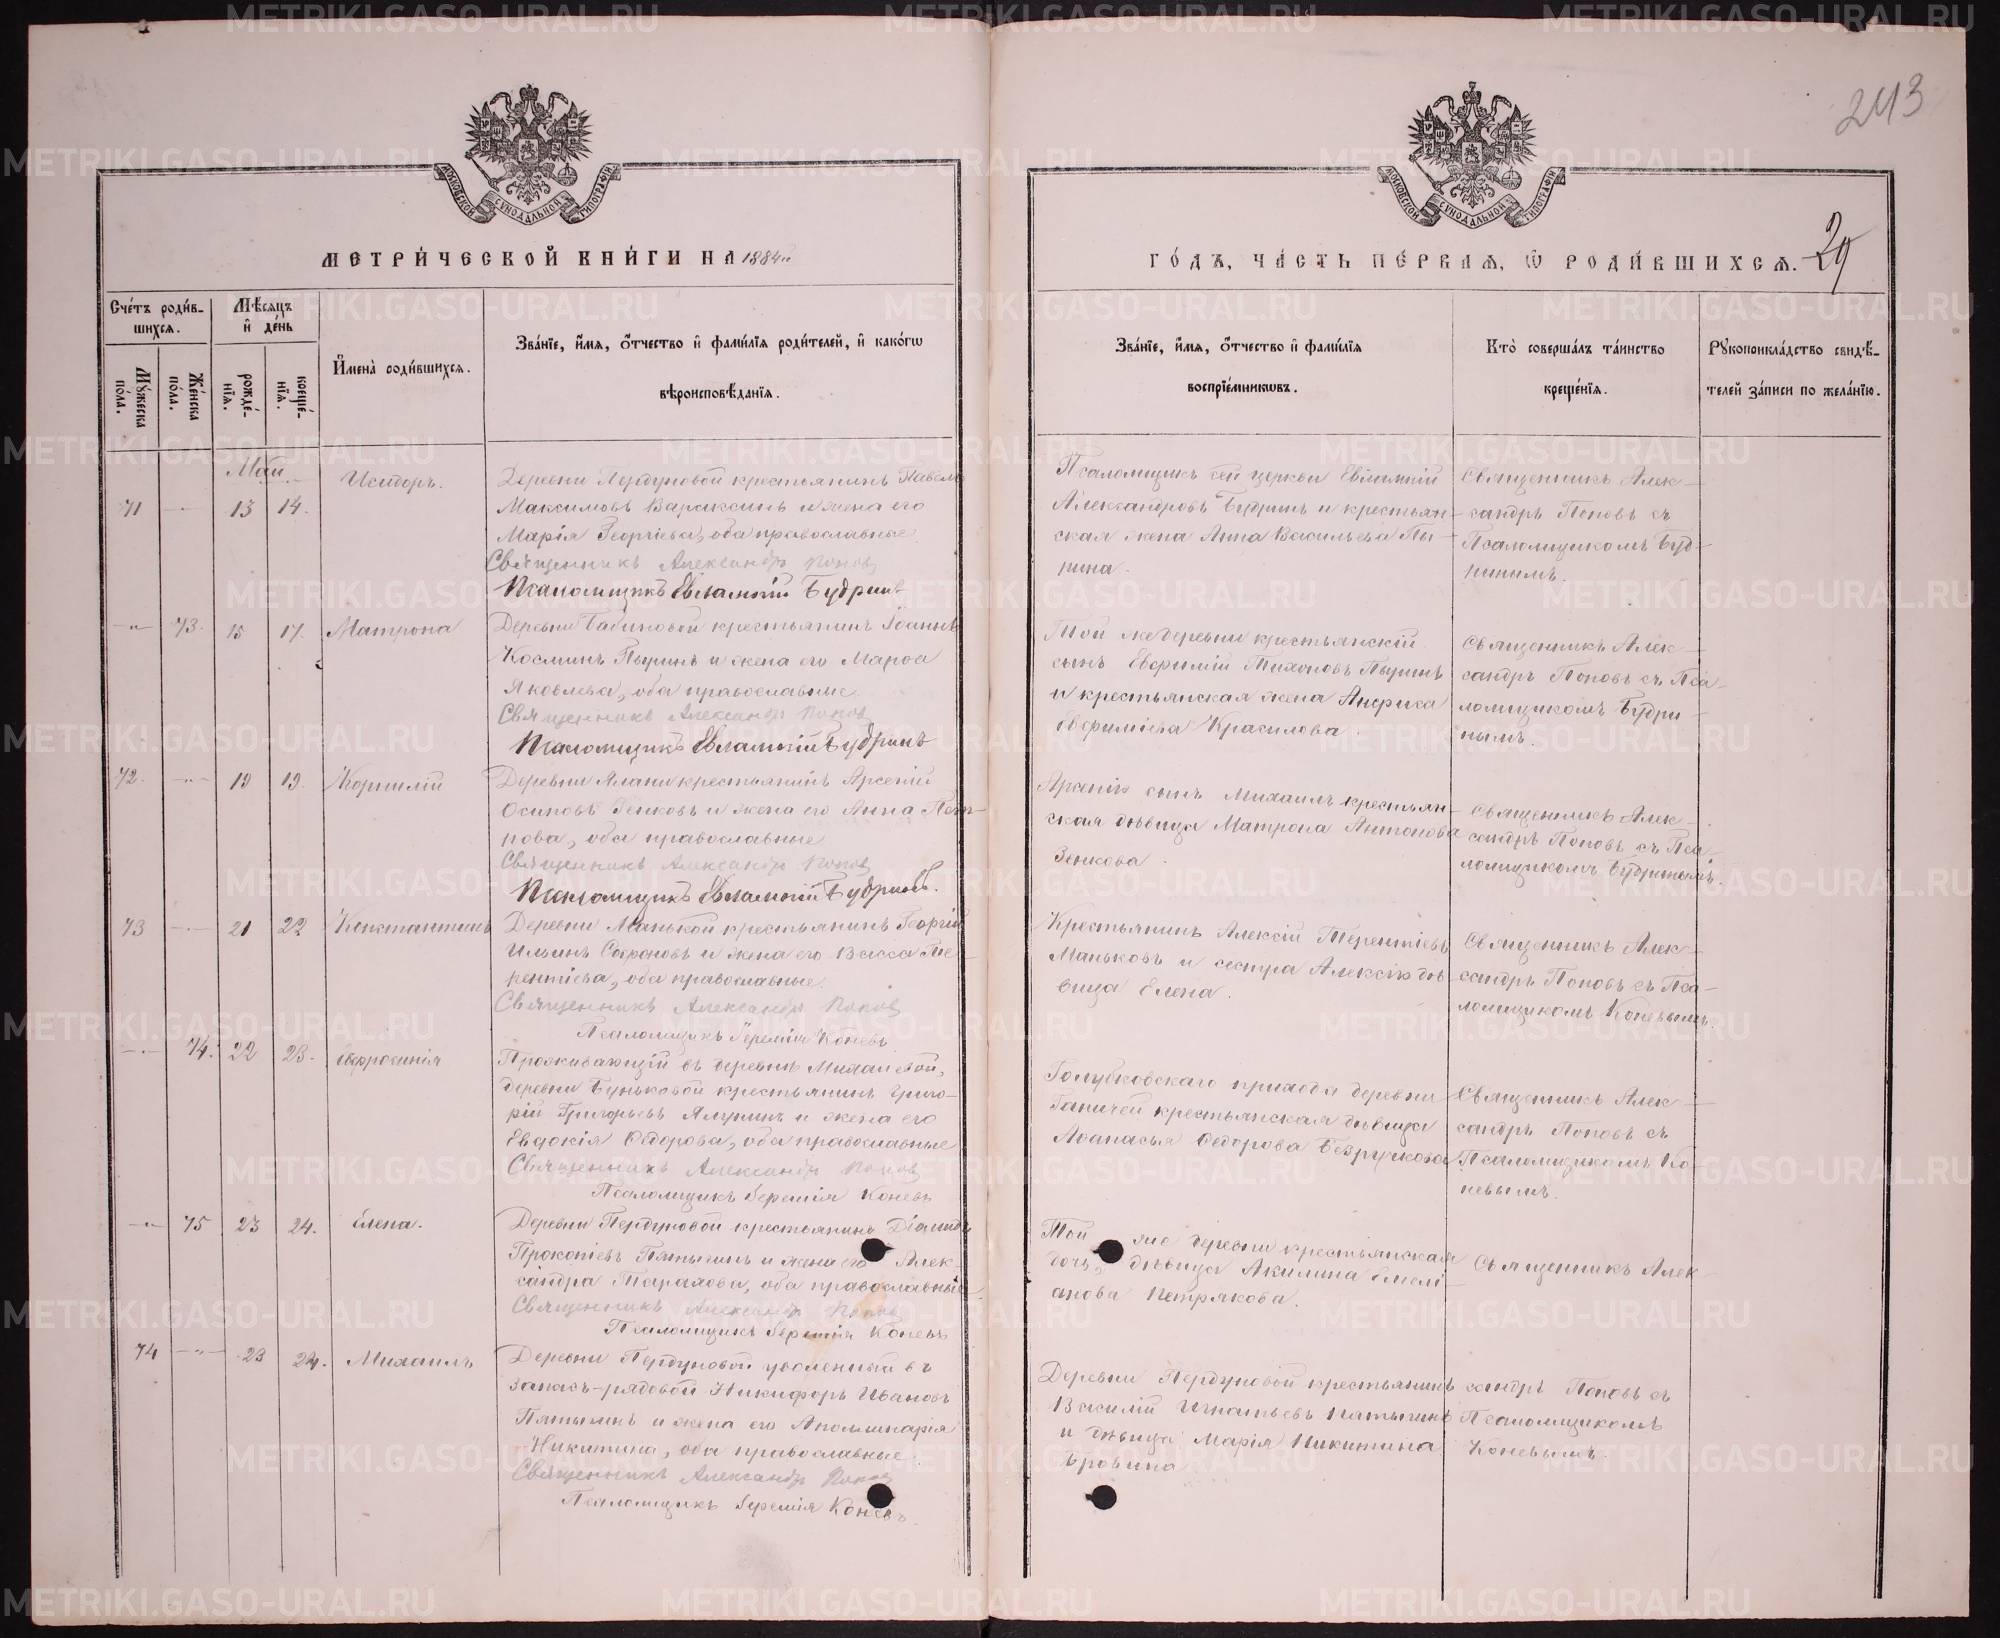 243
МОСКОВСКОЙ СУНОДАЛЬНОЙ ТИПОГРАФІИ
МОСКОВСКОЙ СУНОДАЛЬНОЙ ТИПОГРАФІИ
МЕТРИ́ЧЕСКОЙ КНИ́ГИ НА 1884й
ГО́ДЪ, ЧА́СТЬ ПЕ́РВАЯ, Ѡ РОДИ́ВШИХСЯ.
29
Сче́тъ роди́в-
шихся.
Мѣ́сяцъ
и҆ де́нь
Мꙋ́жеска
по́ла.
Же́нска
по́ла.
рожде́-
нїѧ.
креще́-
нїѧ.
И҆мена̀ роди́вшихся.
Зва́нїе, и҆́мя, ѻ҆́тчество и҆ фами́лїя роди́телей, и҆ како́гѡ
вѣроисповѣ́данїя.
Зва́нїе, и҆́мя, ѻ҆́тчество и҆ фами́лїя
воспрїе́мникѡвъ.
Кто̀ соверша́лъ та́инство
креще́нїя.
Рꙋкоприкла́дство свидѣ́-
телей за́писи по жела́нїю.
Май
71 13 14. Исидоръ.
Деревни Пердуновой крестьянинъ Павелъ
Максимовъ Вараксинъ и жена его
Марія Георгіева, оба православные.
Священникъ Александръ Поповъ
Псаломщикъ Евлампій Будринъ
Псаломщикъ сей церкви Евлампій
Александровъ Будринъ и крестьян-
ская жена Анна Васильева Пы-
рина.
Священникъ Алек-
сандръ Поповъ съ
Псаломщикомъ Буд-
ринымъ.
73. 15 17. Матрона
Деревни Бабиновой крестьянинъ Іоаннъ
Косминъ Пыринъ и жена его Марѳа
Яковлева, оба православные.
Священникъ Александръ Поповъ
Псаломщикъ Евлампій Будринъ
Той же деревни крестьянскій
сынъ Евфимій Тихоновъ Пыринъ
и крестьянская жена Анфиса
Евфиміева Красилова.
Священникъ Алек-
сандръ Поповъ съ Пса-
ломщикомъ Будри-
нымъ.
72. 19 19. Корнилій
Деревни крестьянинъ Арсеній
Осиповъ Зенковъ и жена его Анна Пет-
рова, оба православные
Священникъ Александръ Поповъ
Псаломщикъ Евлампій Будринъ.
Арсенія сынъ Михаилъ крестьян-
ская дѣвица Матрона Антонова
Зенкова.
Священникъ Алек-
сандръ Поповъ съ Пса-
ломщикомъ Будринымъ.
73 21 22 Константинъ
Деревни Манькой крестьянинъ Георгій
Ильинъ Софроновъ и жена его Васса Те-
рентіева, оба православные.
Священникъ Александръ Поповъ
Псаломщикъ Іеремія Коневъ
Крестьянинъ Алексій Терентіевъ
Маньковъ и сестра Алексія дѣ-
вица Елена.
Священникъ Алек-
сандръ Поповъ съ Пса-
ломщикомъ Коневымъ.
74. 22 23. Евфросинія
Проживающій въ деревнѣ
деревни Буньковой крестьянинъ Григо-
рій Григорьевъ и жена его
Евдокія Ѳедорова, оба православные
Священникъ Александръ Поповъ
Псаломщикъ Іеремія Коневъ
Голубковскаго прихода деревни
Ганичей крестьянская дѣвица
Аѳанасья Ѳедорова Безрукова
Священникъ Алек-
сандръ Поповъ съ
Псаломщикомъ Ко-
невымъ.
75 23 24. Елена.
Деревни Пердуновой крестьянинъ Діамидъ
Прокопіевъ Пятыгинъ и жена его Алек-
сандра Тарахова, оба православные.
Священникъ Александръ Поповъ
Псаломщикъ Іеремія Коневъ
Той же деревни крестьянская
дочь, дѣвица Акилина Емелі-
анова Петрякова.
Священникъ Алек-
74 23 24. Михаилъ
Деревни Пердуновой уволенный въ
запасъ-рядовой Никифоръ Ивановъ
Пятыгинъ и жена его Аполлинарія
Никитина, оба православные.
Священникъ Александръ Поповъ
Псаломщикъ Іеремія Коневъ.
Деревни Пердуновой крестьянинъ
Василій Игнатьевъ Пятыгинъ
и дѣвица Марія Никитина
Бровина
сандръ Поповъ съ
Псаломщикомъ
Коневымъ.
METRIKI.GASO-URAL.RU